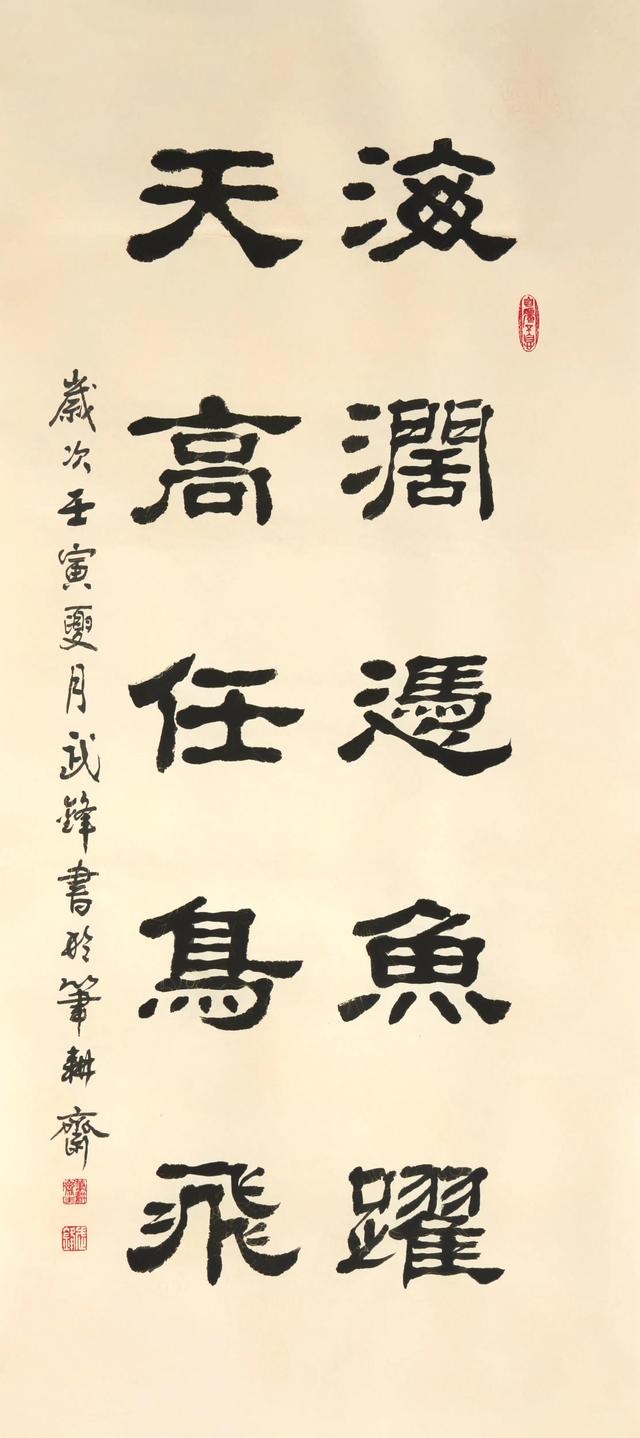 海濶憑魚躍
天高任鳥飛
歲次壬寅夏月武鋒書於筆耕齋